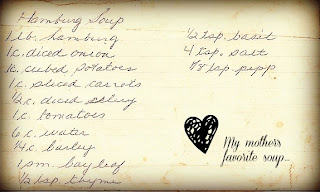 Hamburg Soup
1 lb. hamburg
1 c. diced onion
1 c. cubed potatoes
1 c. sliced carrots
1/2 c. diced celery
1 c. tomatoes
6 c. water
1/4 c. barley
1 sm. bay leaf
1/2 tsp. thyme
1/2 tsp. basil
4 tsp. salt
1/8 tsp. pepp
My mothers
favorite soup...